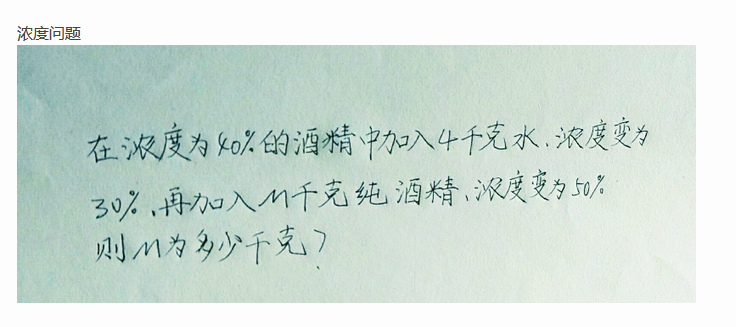 浓度问题
在浓度为40%的酒精中加入4千克水、浓度变为
30%、再加入M千克纯酒精、浓度变为50%
则M为多少千克?